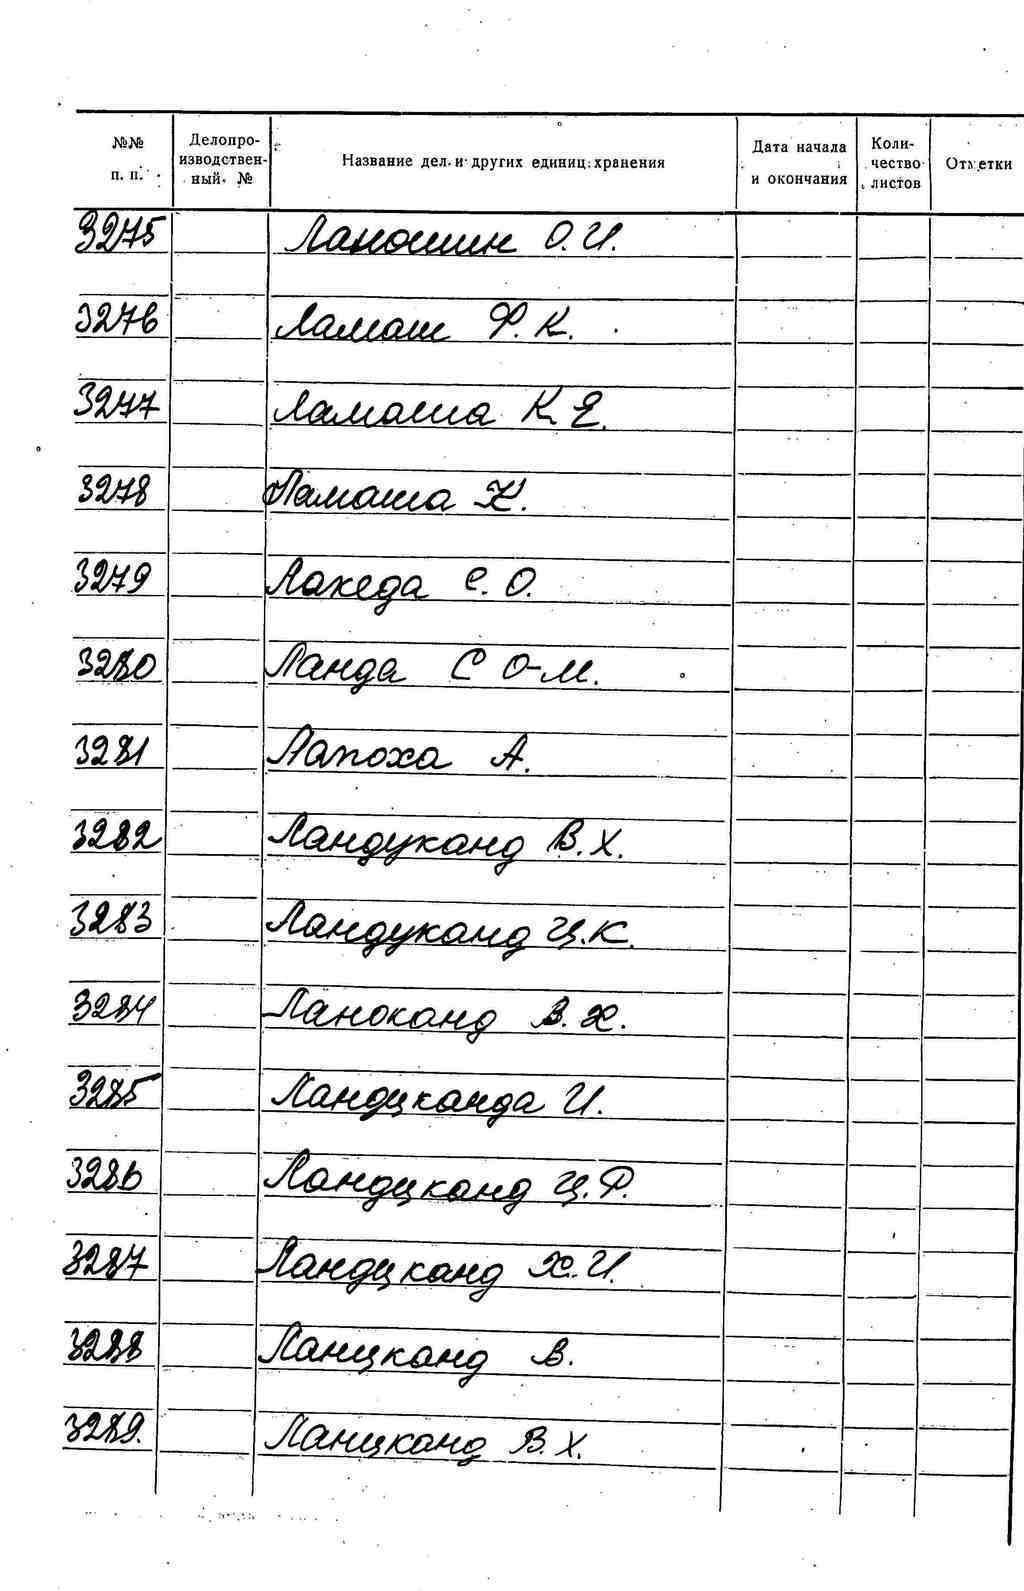 №№ п. п. Делопроизводственный № Название дел и других единиц хранения Дата начала и окончания Количество листов Отметки
3275 Ланошин О.И.
3276 Ламаш Ф.К.
3277 Ламаша К.Е.
3278 Ламаша К.
3279 Лакеда С.О.
3280 Ланда С О-М.
3281 Лапоха А.
3282 Ландуканд В.Х.
3283 Ландуканд Ц.К.
3284 Ланоканд В.Х.
3285 Ландцканда И.
3286 Ландцканд Ц.Ф.
3287 Ландцканд Х.И.
3288 Ланцканд В.
3289. Ланцканд В.Х.